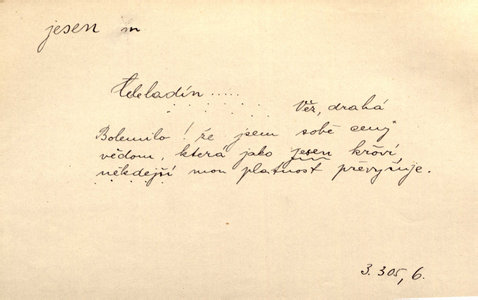 jesen m
Chladín.....
Věř, drahá
Bolemilo! že jsem sobě ceny
vědom, která jako jesen křoví
někdejší mou platnost převyšuje.
3. 305, 6.